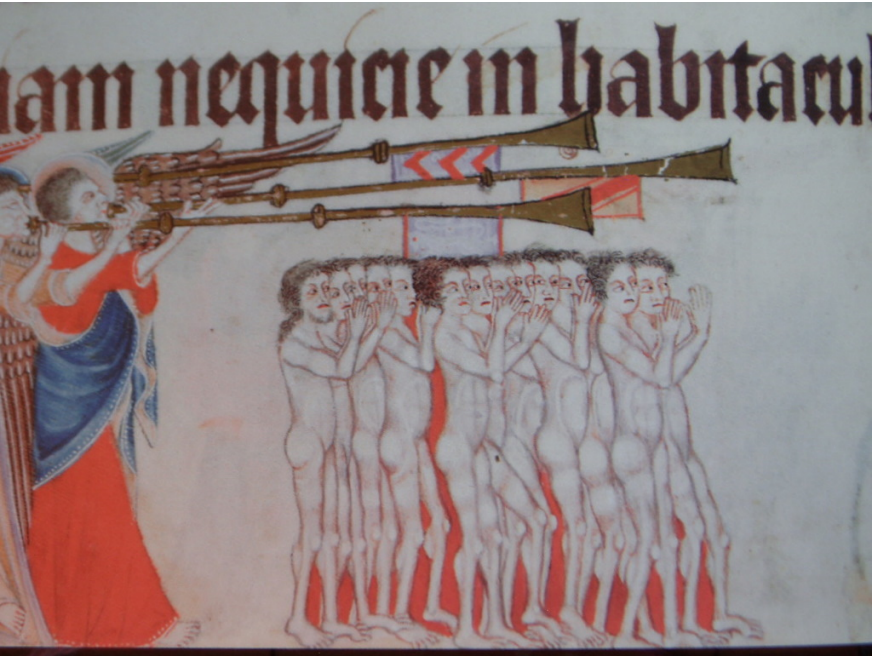 iam nequicie in habitacul